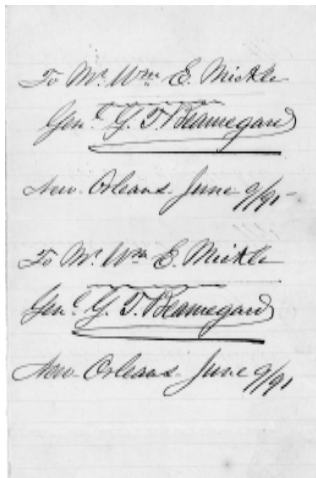 To Mr. Wm E. Mickle
Genl. G. T. Beauregard
New Orleans June 9/91
To Mr. Wm E. Mickle
Genl. G. T. Beauregard
New Orleans June 9/91